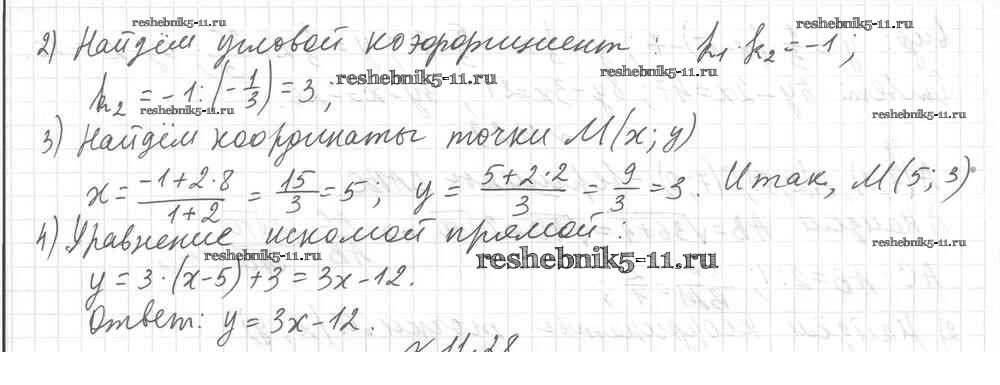 reshebnik5-11.ru reshebnik5-11.ru
2) Найдём угловой коэффициент : k₁·k₂ = -1 ;
k₂ = -1 : (-1/3) = 3 ; reshebnik5-11.ru reshebnik5-11.ru
reshebnik5-11.ru reshebnik5-11.ru
3) Найдём координаты точки M(x; y)
x = (-1+2·8)/(1+2) = 15/3 = 5 ; y = (5+2·2)/3 = 9/3 = 3. Итак, M(5; 3)
4) Уравнение искомой прямой :
reshebnik5-11.ru reshebnik5-11.ru reshebnik5-11.ru
y = 3·(x-5)+3 = 3x-12.
Ответ: y = 3x-12.